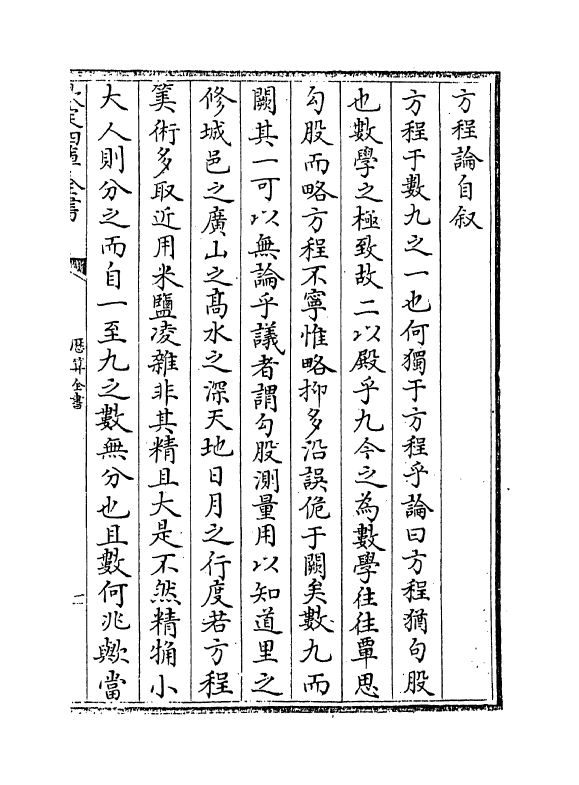 方程論自叙
方程于數九之一也何獨于方程乎論曰方程猶句股
也數學之極致故二以殿乎九今之為數學往往覃思
勾股而略方程不寧惟略抑多沿誤侊于闕矣數九而
闕其一可以無論乎議者謂勾股測量用以知道里之
修城邑之廣山之髙水之深天地日月之行度若方程
筭術多取近用米鹽凌雜非其精且大是不然精觕小
大人則分之而自一至九之數無分也且數何兆歟當
欽定四庫全書
厯算全書
二